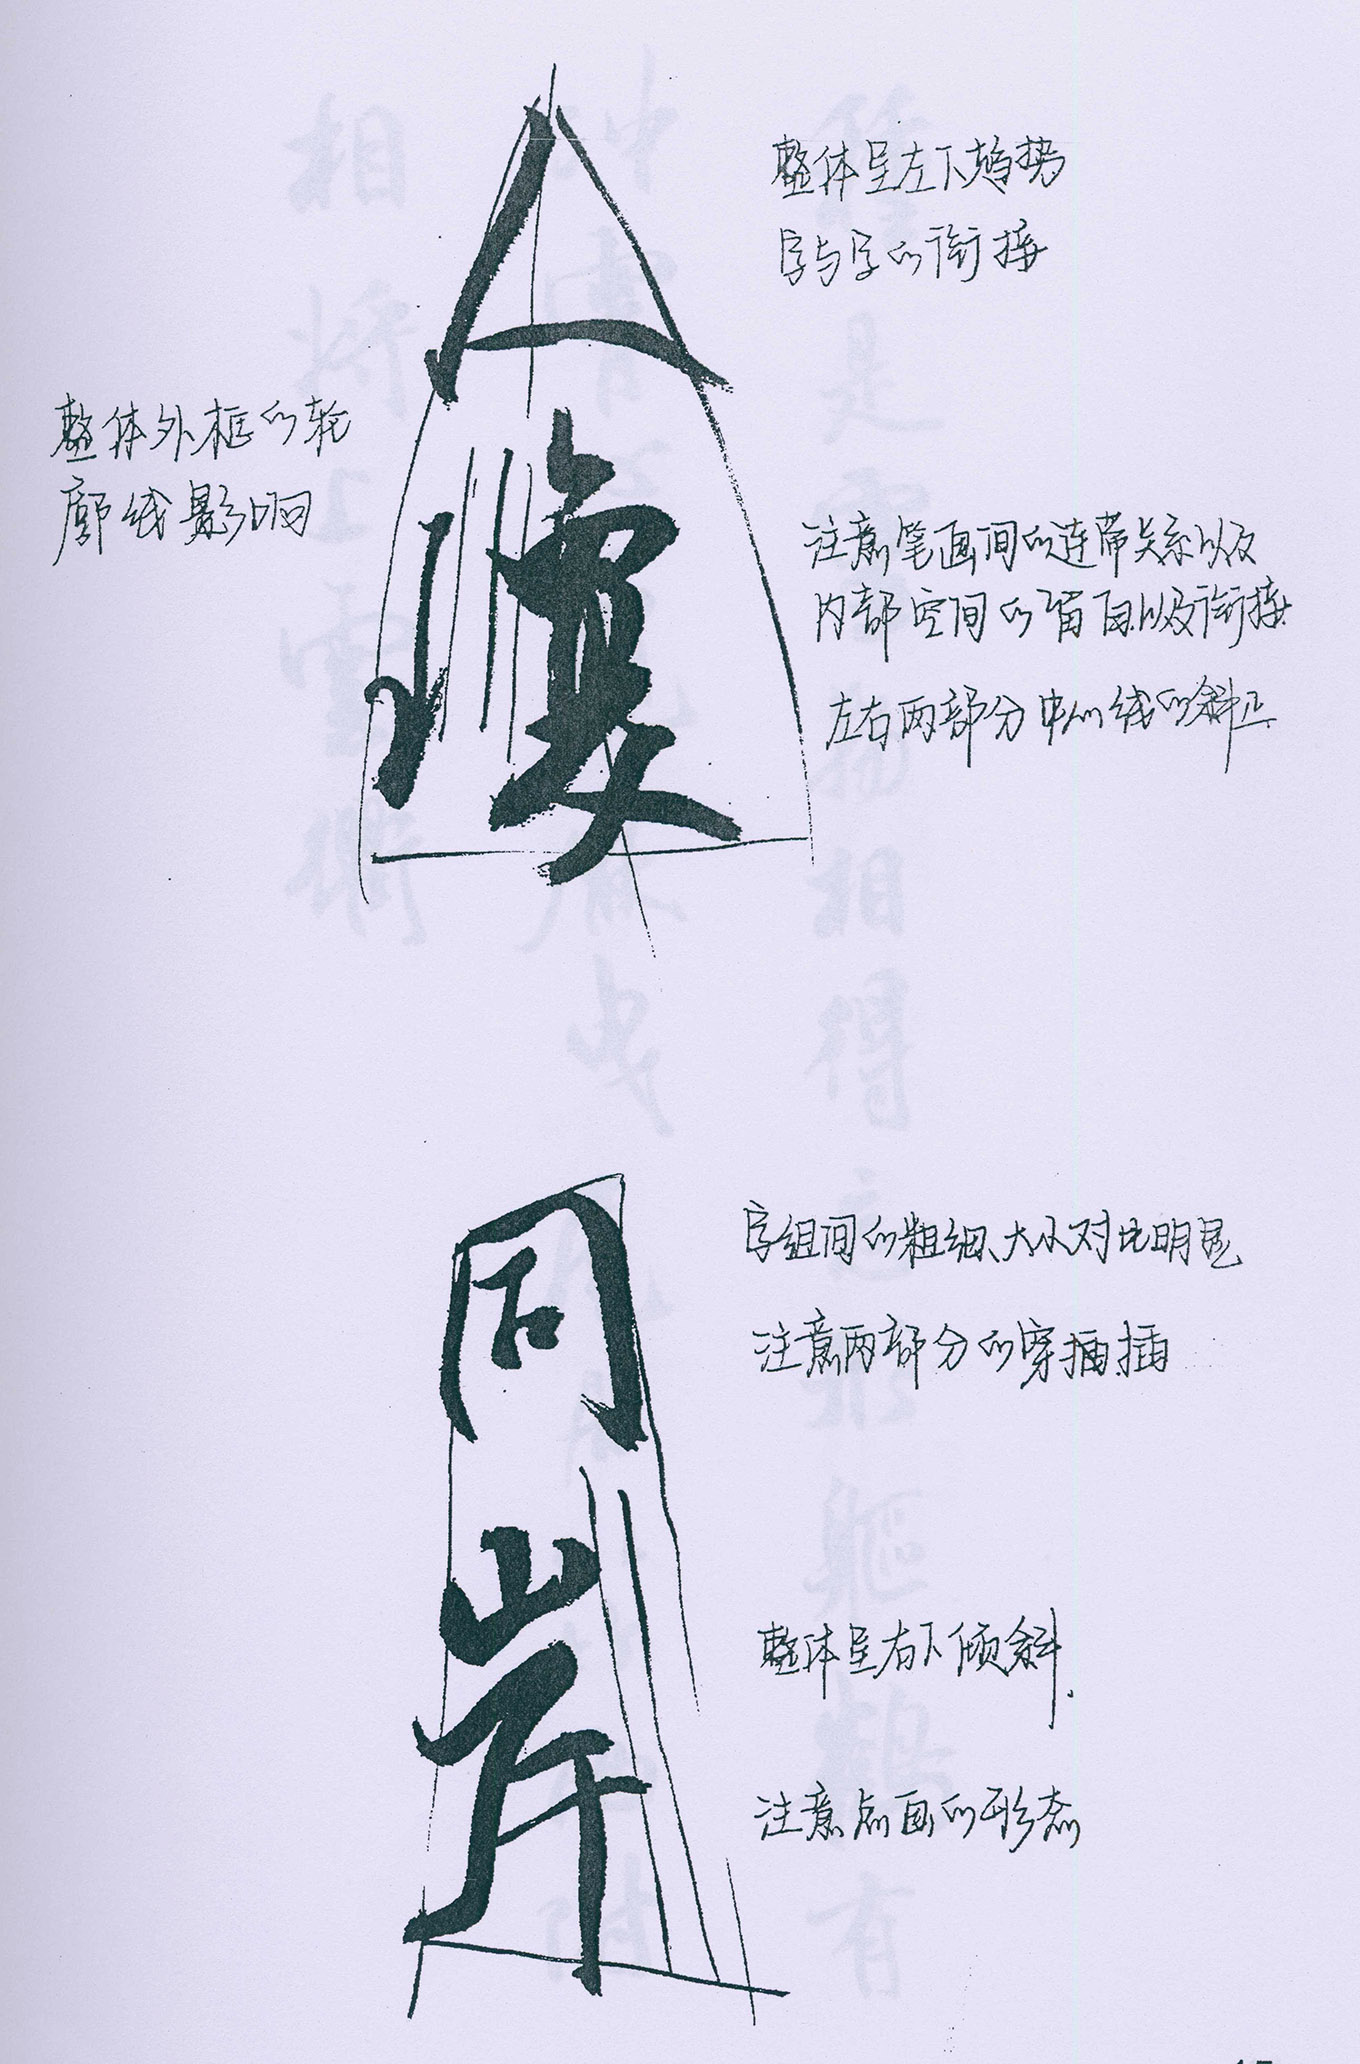 整体呈左下趋势
字与字的衔接
整体外框的轮
廓线影响
注意笔画间的连带关系以及
内部空间的留白以及衔接
左右两部分中心线的斜正
同
岸
字组间的粗细、大小对比明显
注意两部分的穿插插
整体呈右下倾斜.
注意点画的形态